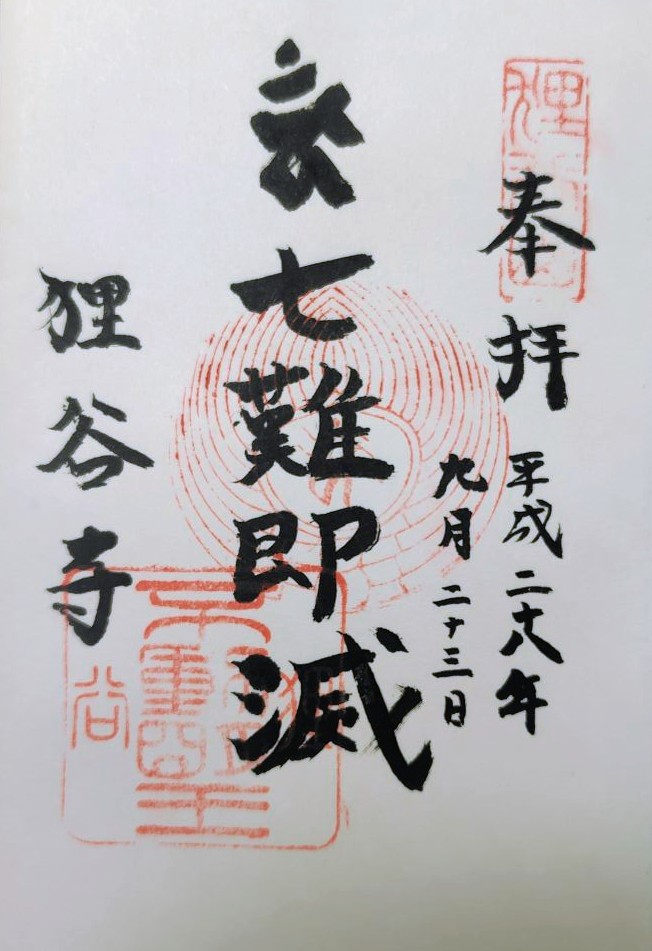 奉拝
平成二十八年
九月二十三日
七難即滅
狸谷寺